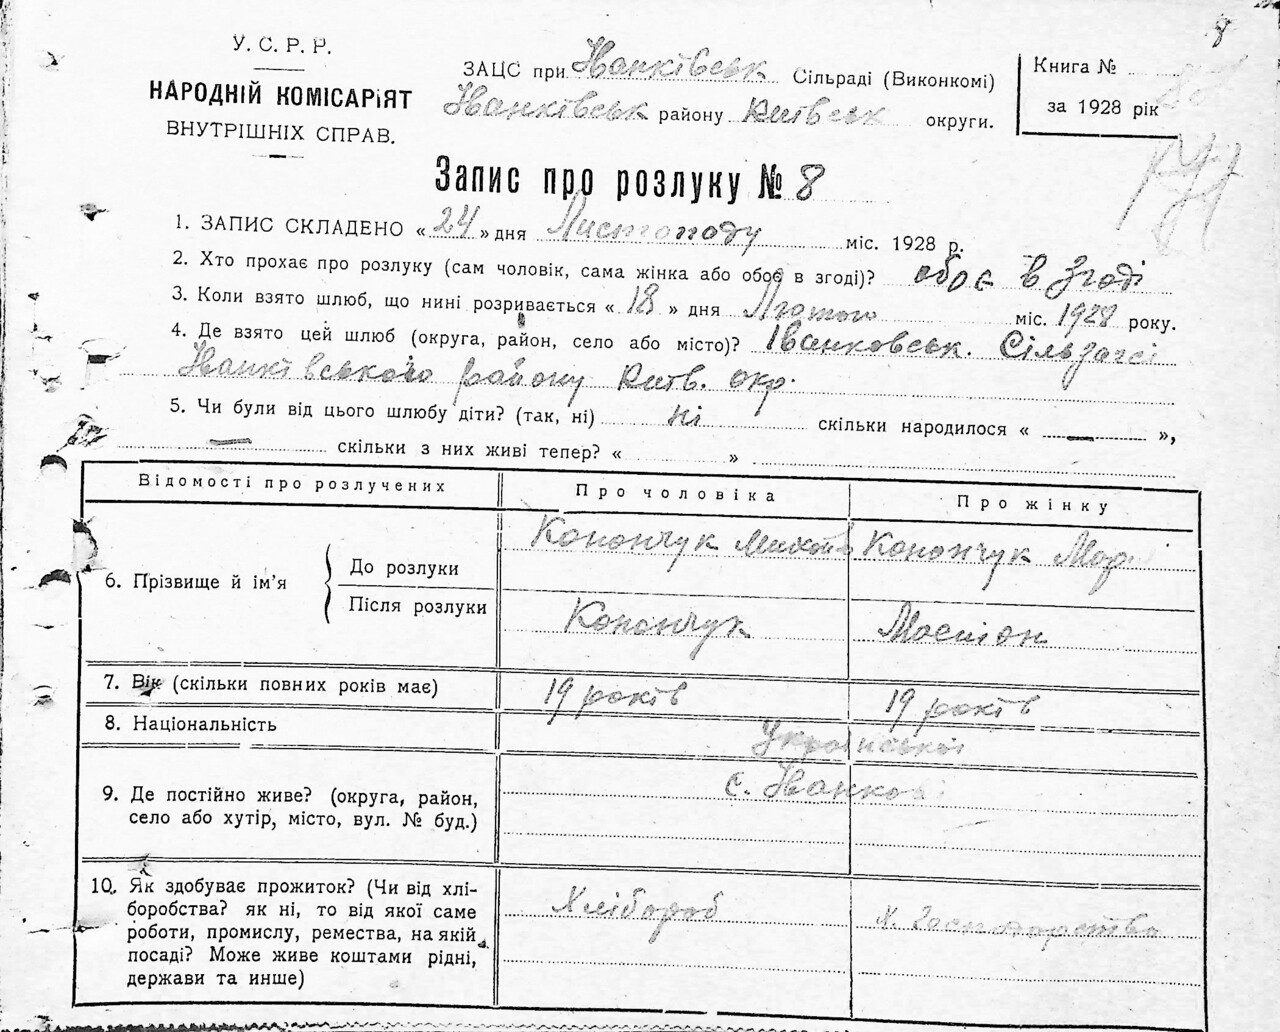 8
У. С. Р. Р.
НАРОДНІЙ КОМІСАРІЯТ
ВНУТРІШНІХ СПРАВ.
ЗАЦС при Іванківськ Сільраді (Виконкомі)
Іванківськ району Київськ округи.
Книга №
за 1928 рік
Запис про розлуку № 8
1. ЗАПИС СКЛАДЕНО « 24 » дня Листопаду міс. 1928 р.
2. Хто прохає про розлуку (сам чоловік, сама жінка або обоє в згоді)? обоє в згоді
3. Коли взято шлюб, що нині розривається « 18 » дня Лютого міс. 1928 року.
4. Де взято цей шлюб (округа, район, село або місто)? Іванковськ. Сільзагсі
Іванківського району Київ. окр.
5. Чи були від цього шлюбу діти? (так, ні) ні скільки народилося « — »,
— скільки з них живі тепер? « »
Відомості про розлучених Про чоловіка Про жінку
6. Прізвище й ім'я
До розлуки Конончук Конончук
Після розлуки Конончук
7. Вік (скільки повних років має) 19 років 19 років
8. Національність Української
9. Де постійно живе? (округа, район, с.
село або хутір, місто, вул. № буд.)
10. Як здобуває прожиток? (Чи від хлі- Хлібороб
боробства? як ні, то від якої саме Х. Господарство
роботи, промислу, ремества, на якій
посаді? Може живе коштами рідні,
держави та инше)